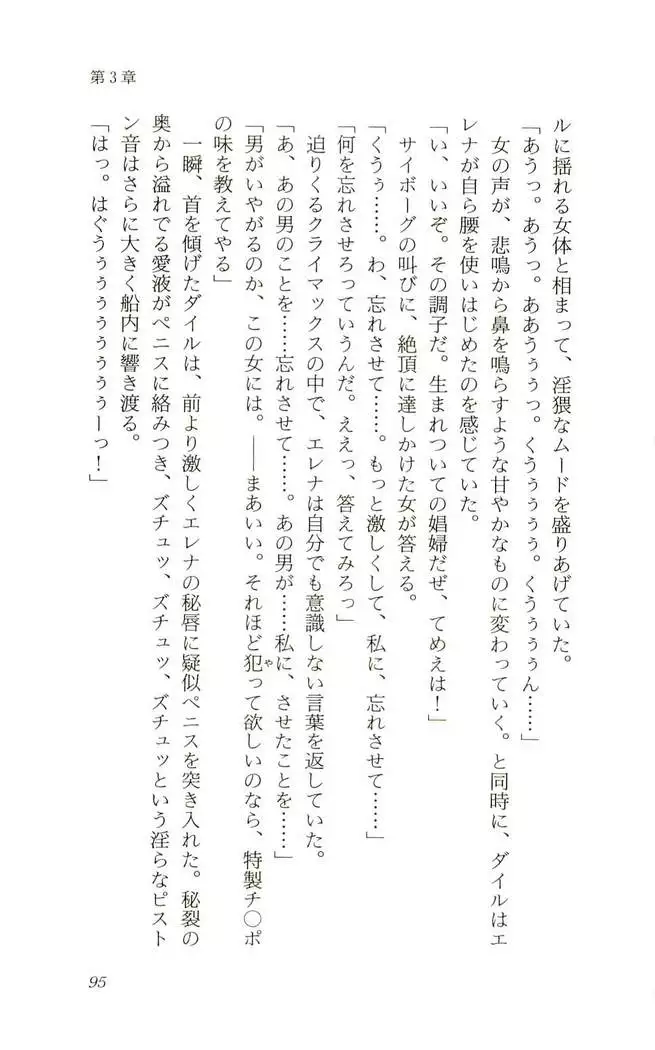 第3章
ルに揺れる女体と相まって、淫猥なムードを盛りあげていた。
「あうっ。あうっ。ああうぅぅっ。くうぅぅぅぅ。くうぅぅぅん……」
女の声が、悲鳴から鼻を鳴らすような甘やかなものに変わっていく。と同時に、ダイルはエ
レナが自ら腰を使いはじめたのを感じていた。
「い、いいぞ。その調子だ。生まれついての娼婦だぜ、てめえは！」
サイボーグの叫びに、絶頂に達しかけた女が答える。
「くうぅ……。わ、忘れさせて……。もっと激しくして、私に、忘れさせて……」
「何を忘れさせろっていうんだ。ええっ、答えてみろっ」
迫りくるクライマックスの中で、エレナは自分でも意識しない言葉を返していた。
「あ、あの男のことを……忘れさせて……。あの男が……私に、させたことを……」
「男がいやがるのか、この女には。――まあいい。それほど犯って欲しいのなら、特製チ○ポ
の味を教えてやる」
一瞬、首を傾げたダイルは、前より激しくエレナの秘唇に疑似ペニスを突き入れた。秘裂の
奥から溢れでる愛液がペニスに絡みつき、ズチュッ、ズチュッ、ズチュッという淫らなピスト
ン音はさらに大きく船内に響き渡る。
「はっ。はぐうぅぅぅぅぅぅぅーっ！」
95